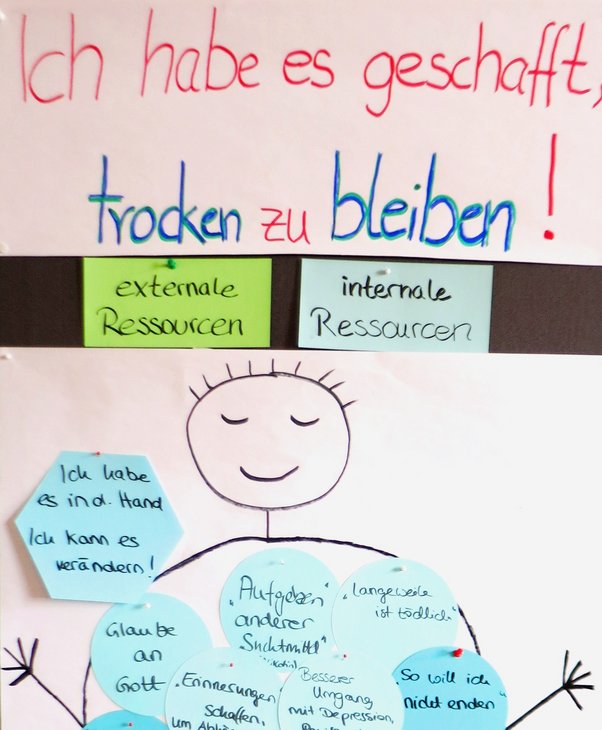 Ich habe es geschafft,
trocken zu bleiben!
externale
Ressourcen
internale
Ressourcen
Ich habe
es in d. Hand
Ich kann es
verändern!
"Aufgeben"
anderer
"Suchtmittel"
"Langeweile
ist tödlich"
Glaube
an
Gott
"Erinnerungen
schaffen,
um
Besserer
Umgang
mit Depression,
"So will ich
nicht enden"